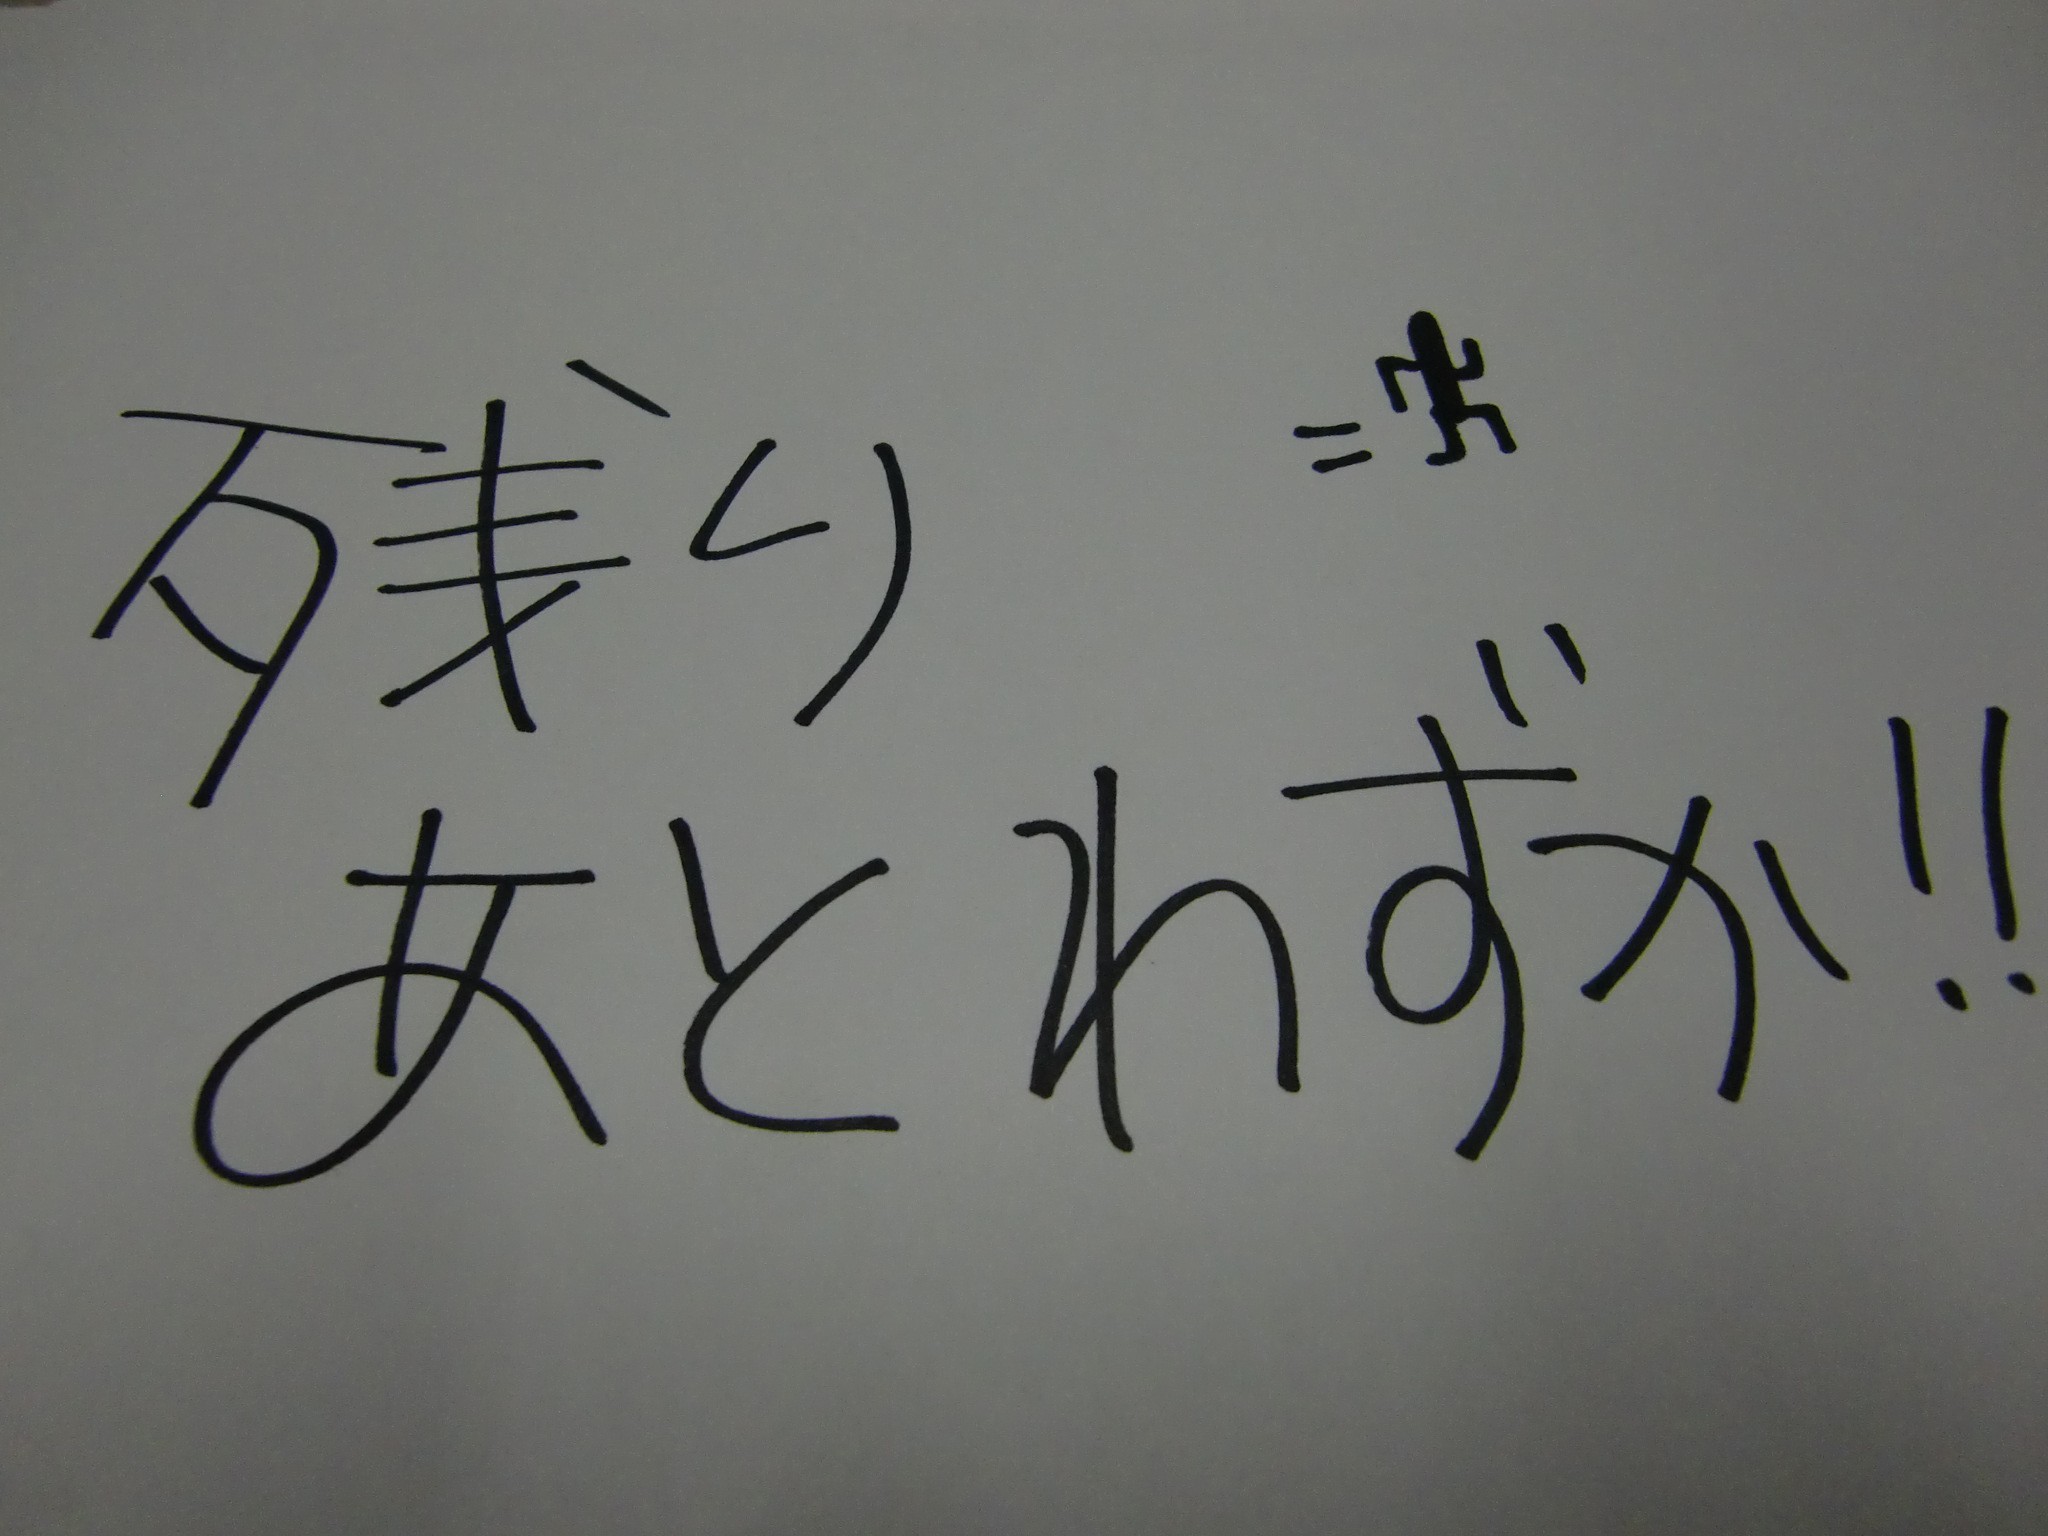 残り
あとわずか!!